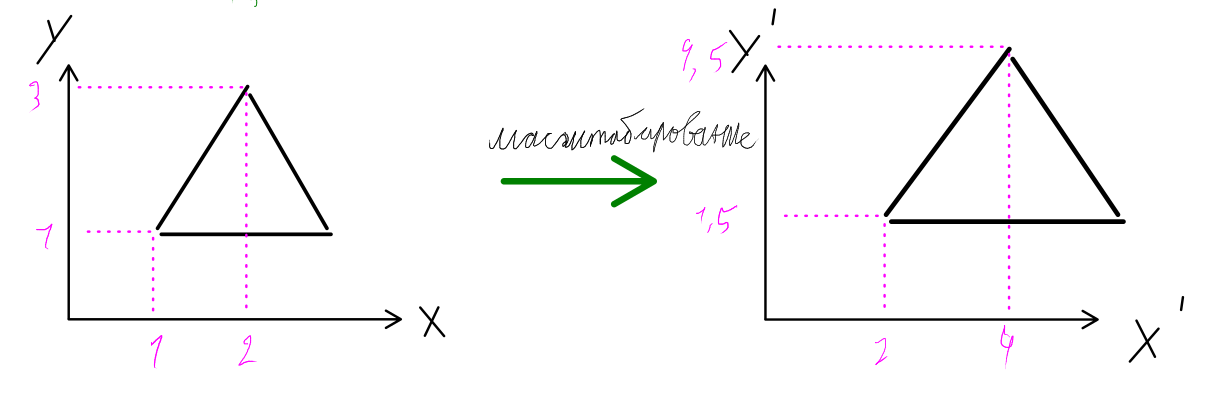 Y
3
1
1 2
X
масштабирование
Y'
4,5
1,5
2 4
X'